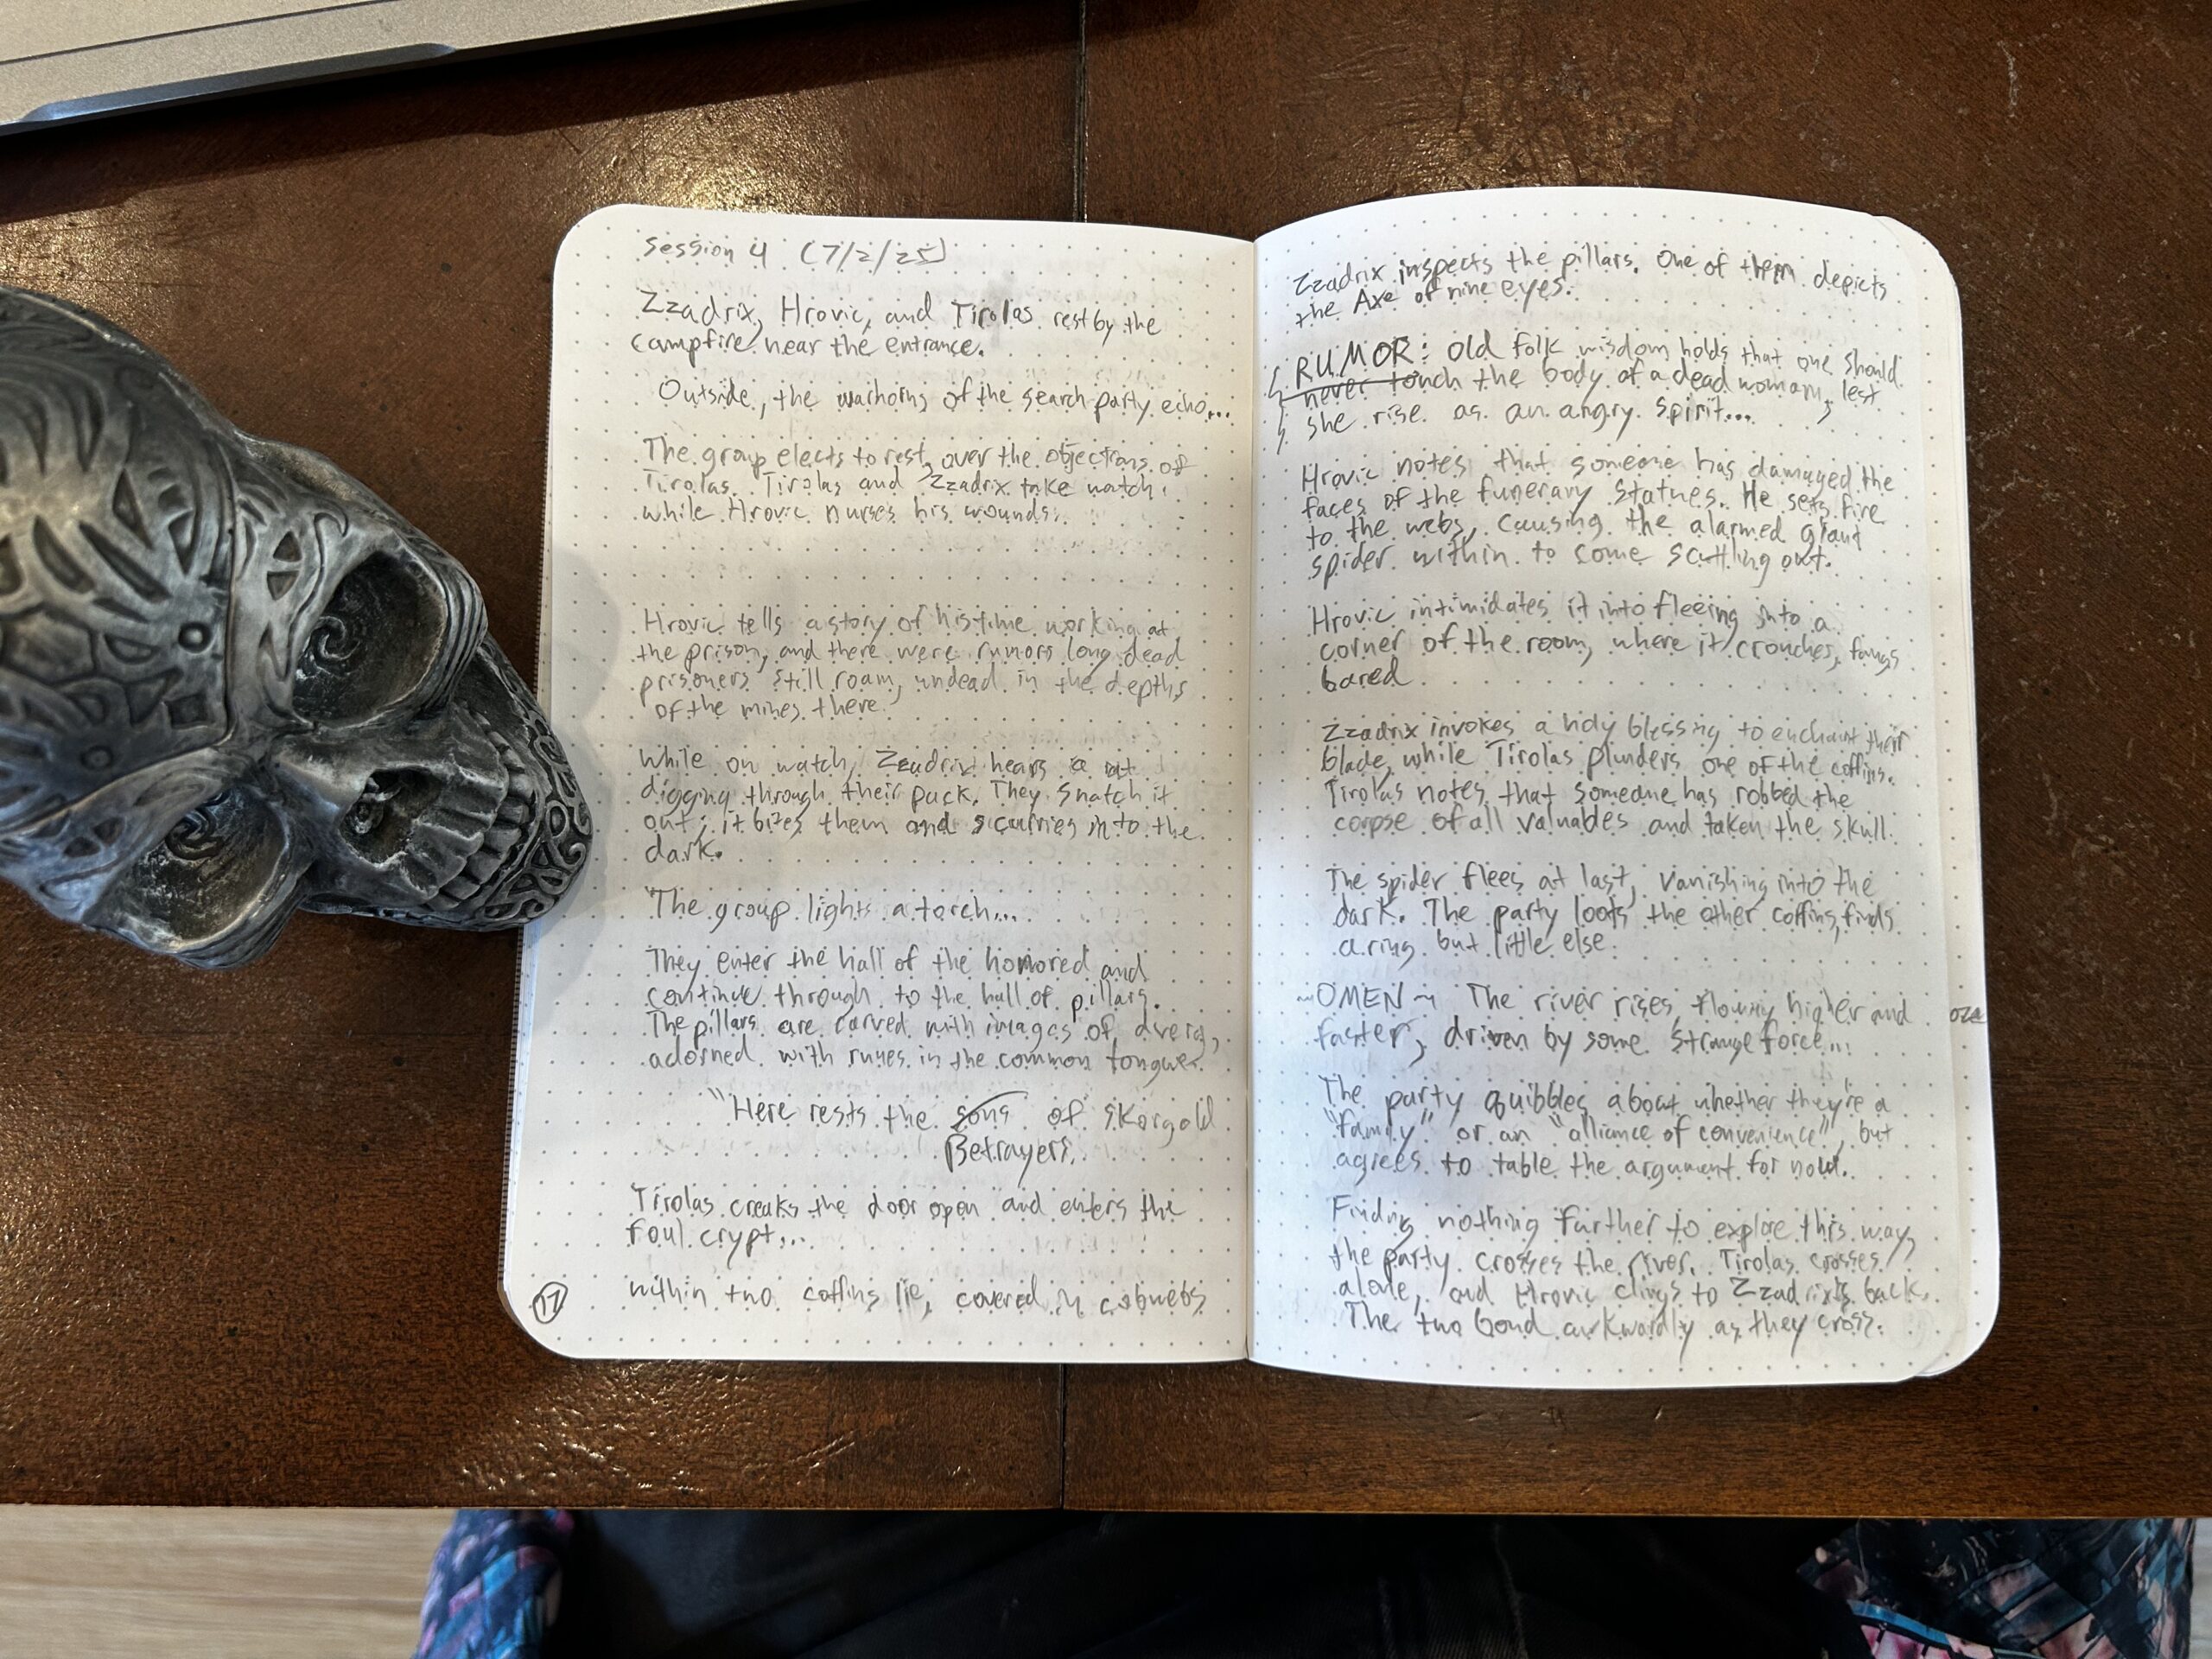 Session 4 (7/2/25)
Zzadrix, Hrovic, and Tirolas rest by the
campfire near the entrance.
Outside, the warhorns of the search party echo...
The group elects to rest, over the objections of
Tirolas. Tirolas and Zzadrix take watch,
while Hrovic nurses his wounds.
Hrovic tells a story of his time working at
the prison, and there were rumors long dead
prisoners still roam, undead in the depths
of the mines there.
While on watch, Zzadrix hears a rat
digging through their pack. They snatch it
out; it bites them and scurries into the
dark.
The group lights a torch...
They enter the hall of the honored and
continue through to the hall of pillars.
The pillars are carved with images of
adorned with runes in the common tongue.
"Here rests the sons of Skorgold
Betrayers.
Tirolas creaks the door open and enters the
foul crypt...
within two coffins lie, covered in cobwebs
17
Zzadrix inspects the pillars. One of them depicts
the Axe of nine eyes.
RUMOR: Old folk wisdom holds that one should
never touch the body of a dead woman, lest
she rise as an angry spirit...
Hrovic notes that someone has damaged the
faces of the funerary statues. He sets fire
to the webs, causing the alarmed giant
spider within to come scuttling out.
Hrovic intimidates it into fleeing into a
corner of the room, where it crouches, fangs
bared.
Zzadrix invokes a holy blessing to enchant their
blade, while Tirolas plunders one of the coffins.
Tirolas notes that someone has robbed the
corpse of all valuables and taken the skull.
The spider flees at last, vanishing into the
dark. The party loots the other coffins, finds
a ring but little else.
~OMEN~ The river rises, flowing higher and
faster, driven by some strange force...
The party quibbles about whether they're a
"family" or an "alliance of convenience", but
agrees to table the argument for now.
Finding nothing further to explore this way,
the party crosses the river. Tirolas crosses
alone, and Hrovic clings to Zzadrix's back.
The two bond awkwardly as they cross.